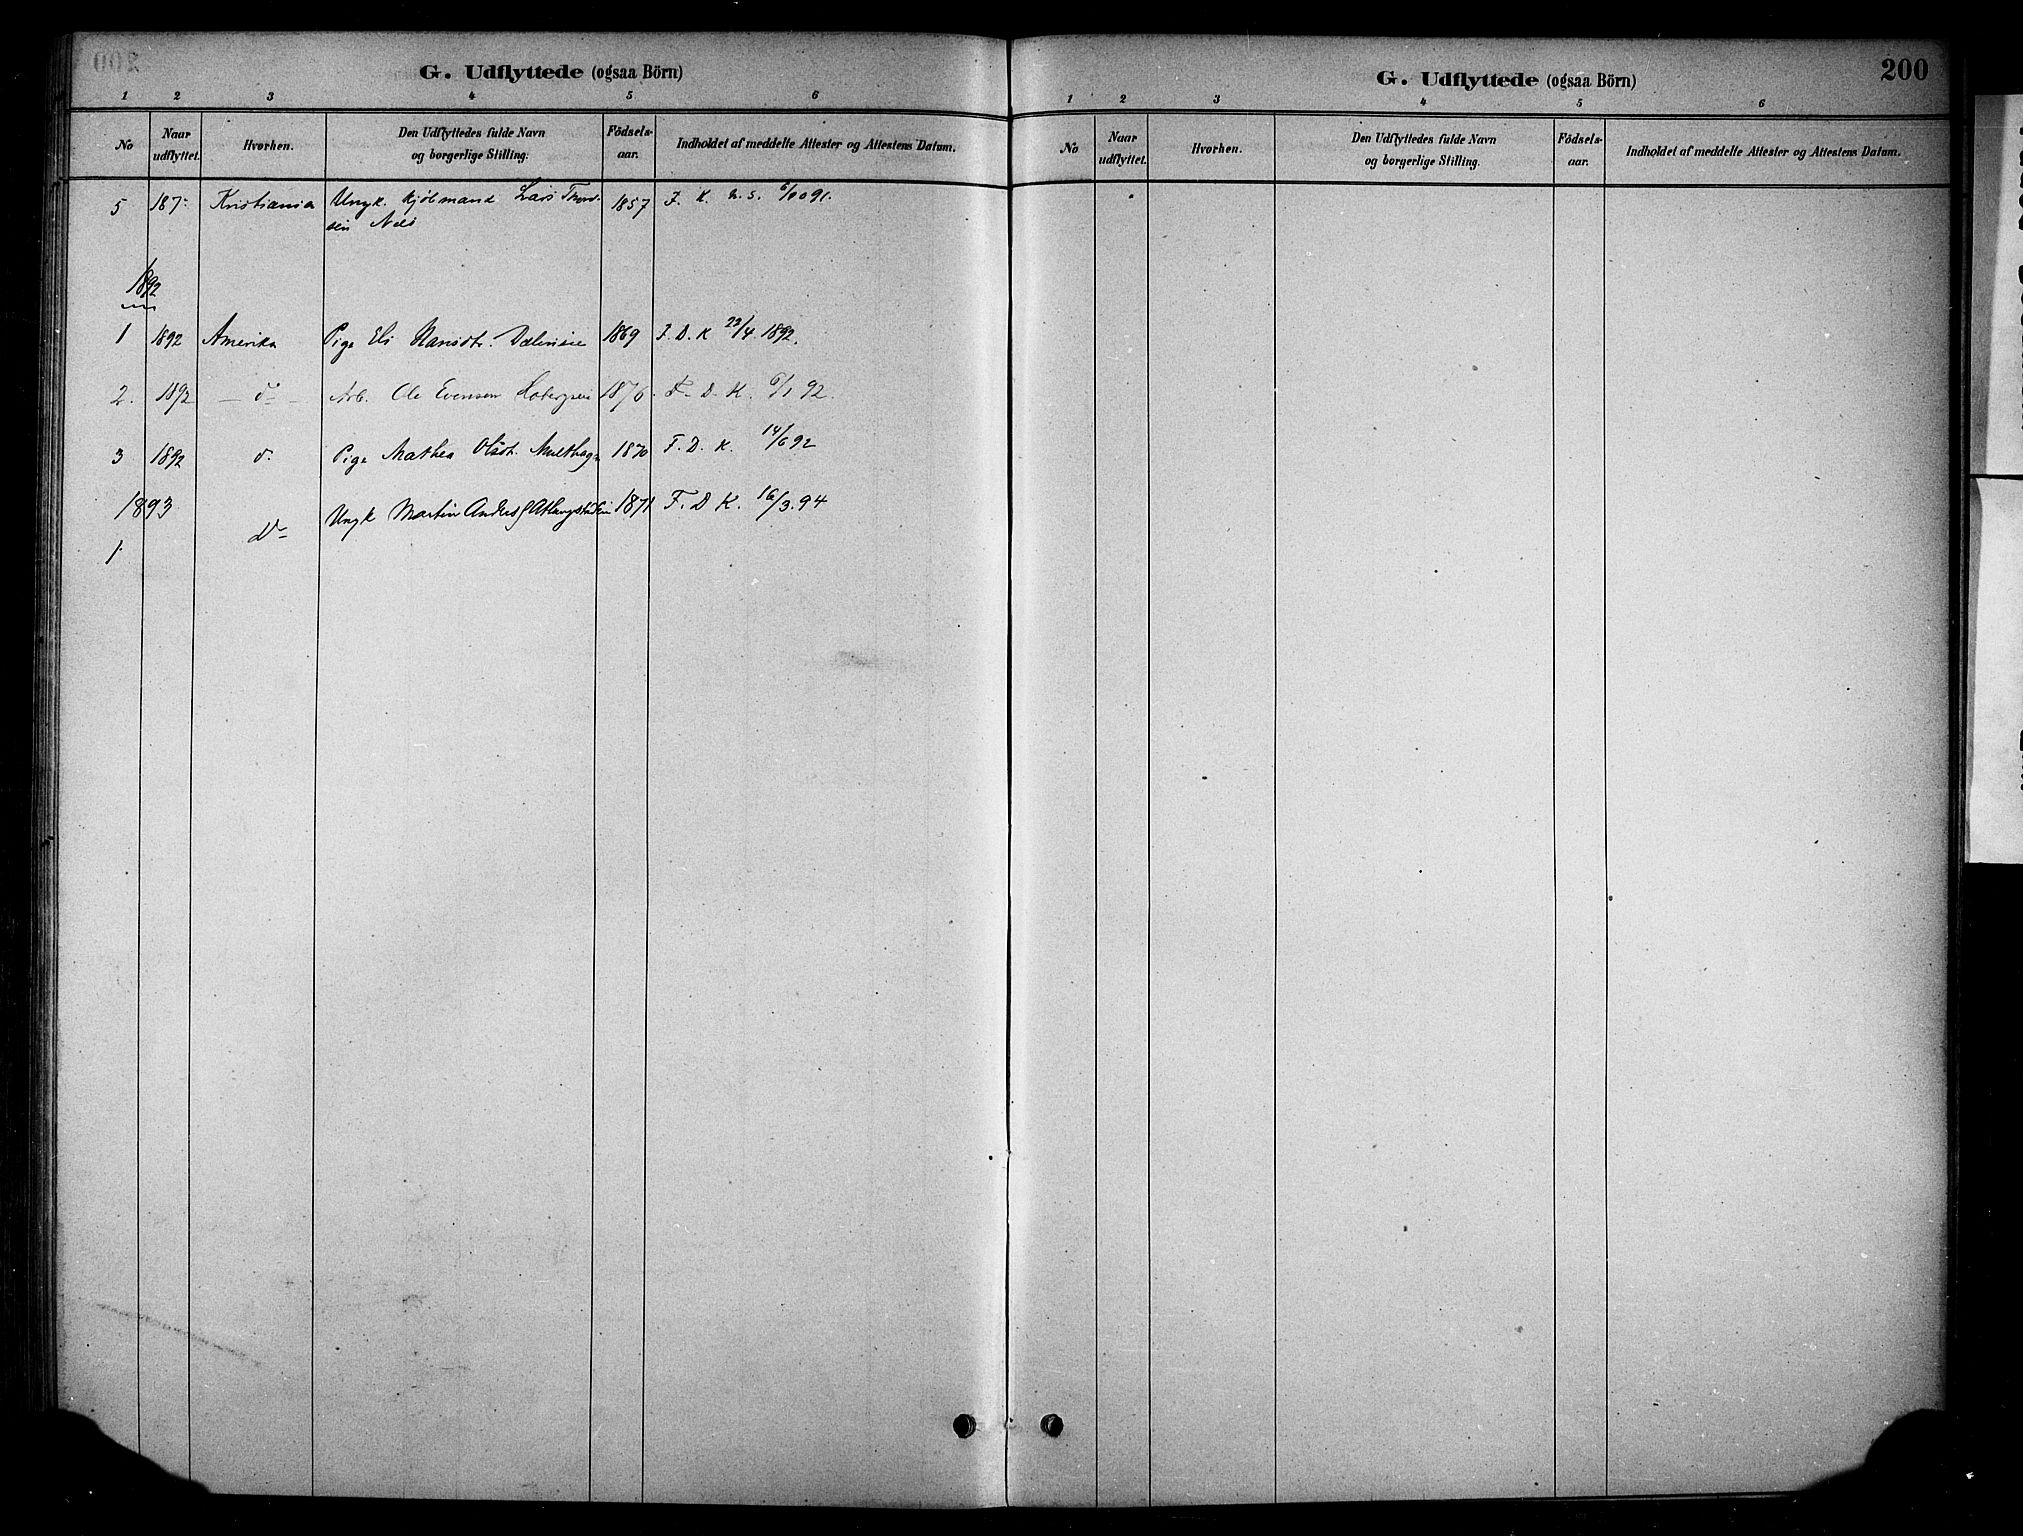 G. Udflyttede (ogsaa Börn)
1 2 3 4 5 6
No Naar udflyttet. Hvorhen. Den Udflyttedes fulde Navn og borgerlige Stilling. Födsels-aar. Indholdet af meddelte Attester og Attestens Datum.
5 187 Kristiania Ungk. Lars 1857 F. K.
1892
1 1892 Amerika Pige Hansdtr. 1869 F. D. K 22/4 1892.
2. 1892 - do - Arb. Ole Evensen 1876. F. D. K. 6/1 92.
3 1892 do. Pige Mathea Olsdt. 1870 F. D. K. 14/6 92
1893 Ungk Martin Anders 1871 F. D K. 16/3. 94
1. Do
G. Udflyttede (ogsaa Börn) 200
1 2 3 4 5 6
No Naar udflyttet. Hvorhen. Den Udflyttedes fulde Navn og borgerlige Stilling. Födsels-aar. Indholdet af meddelte Attester og Attestens Datum.